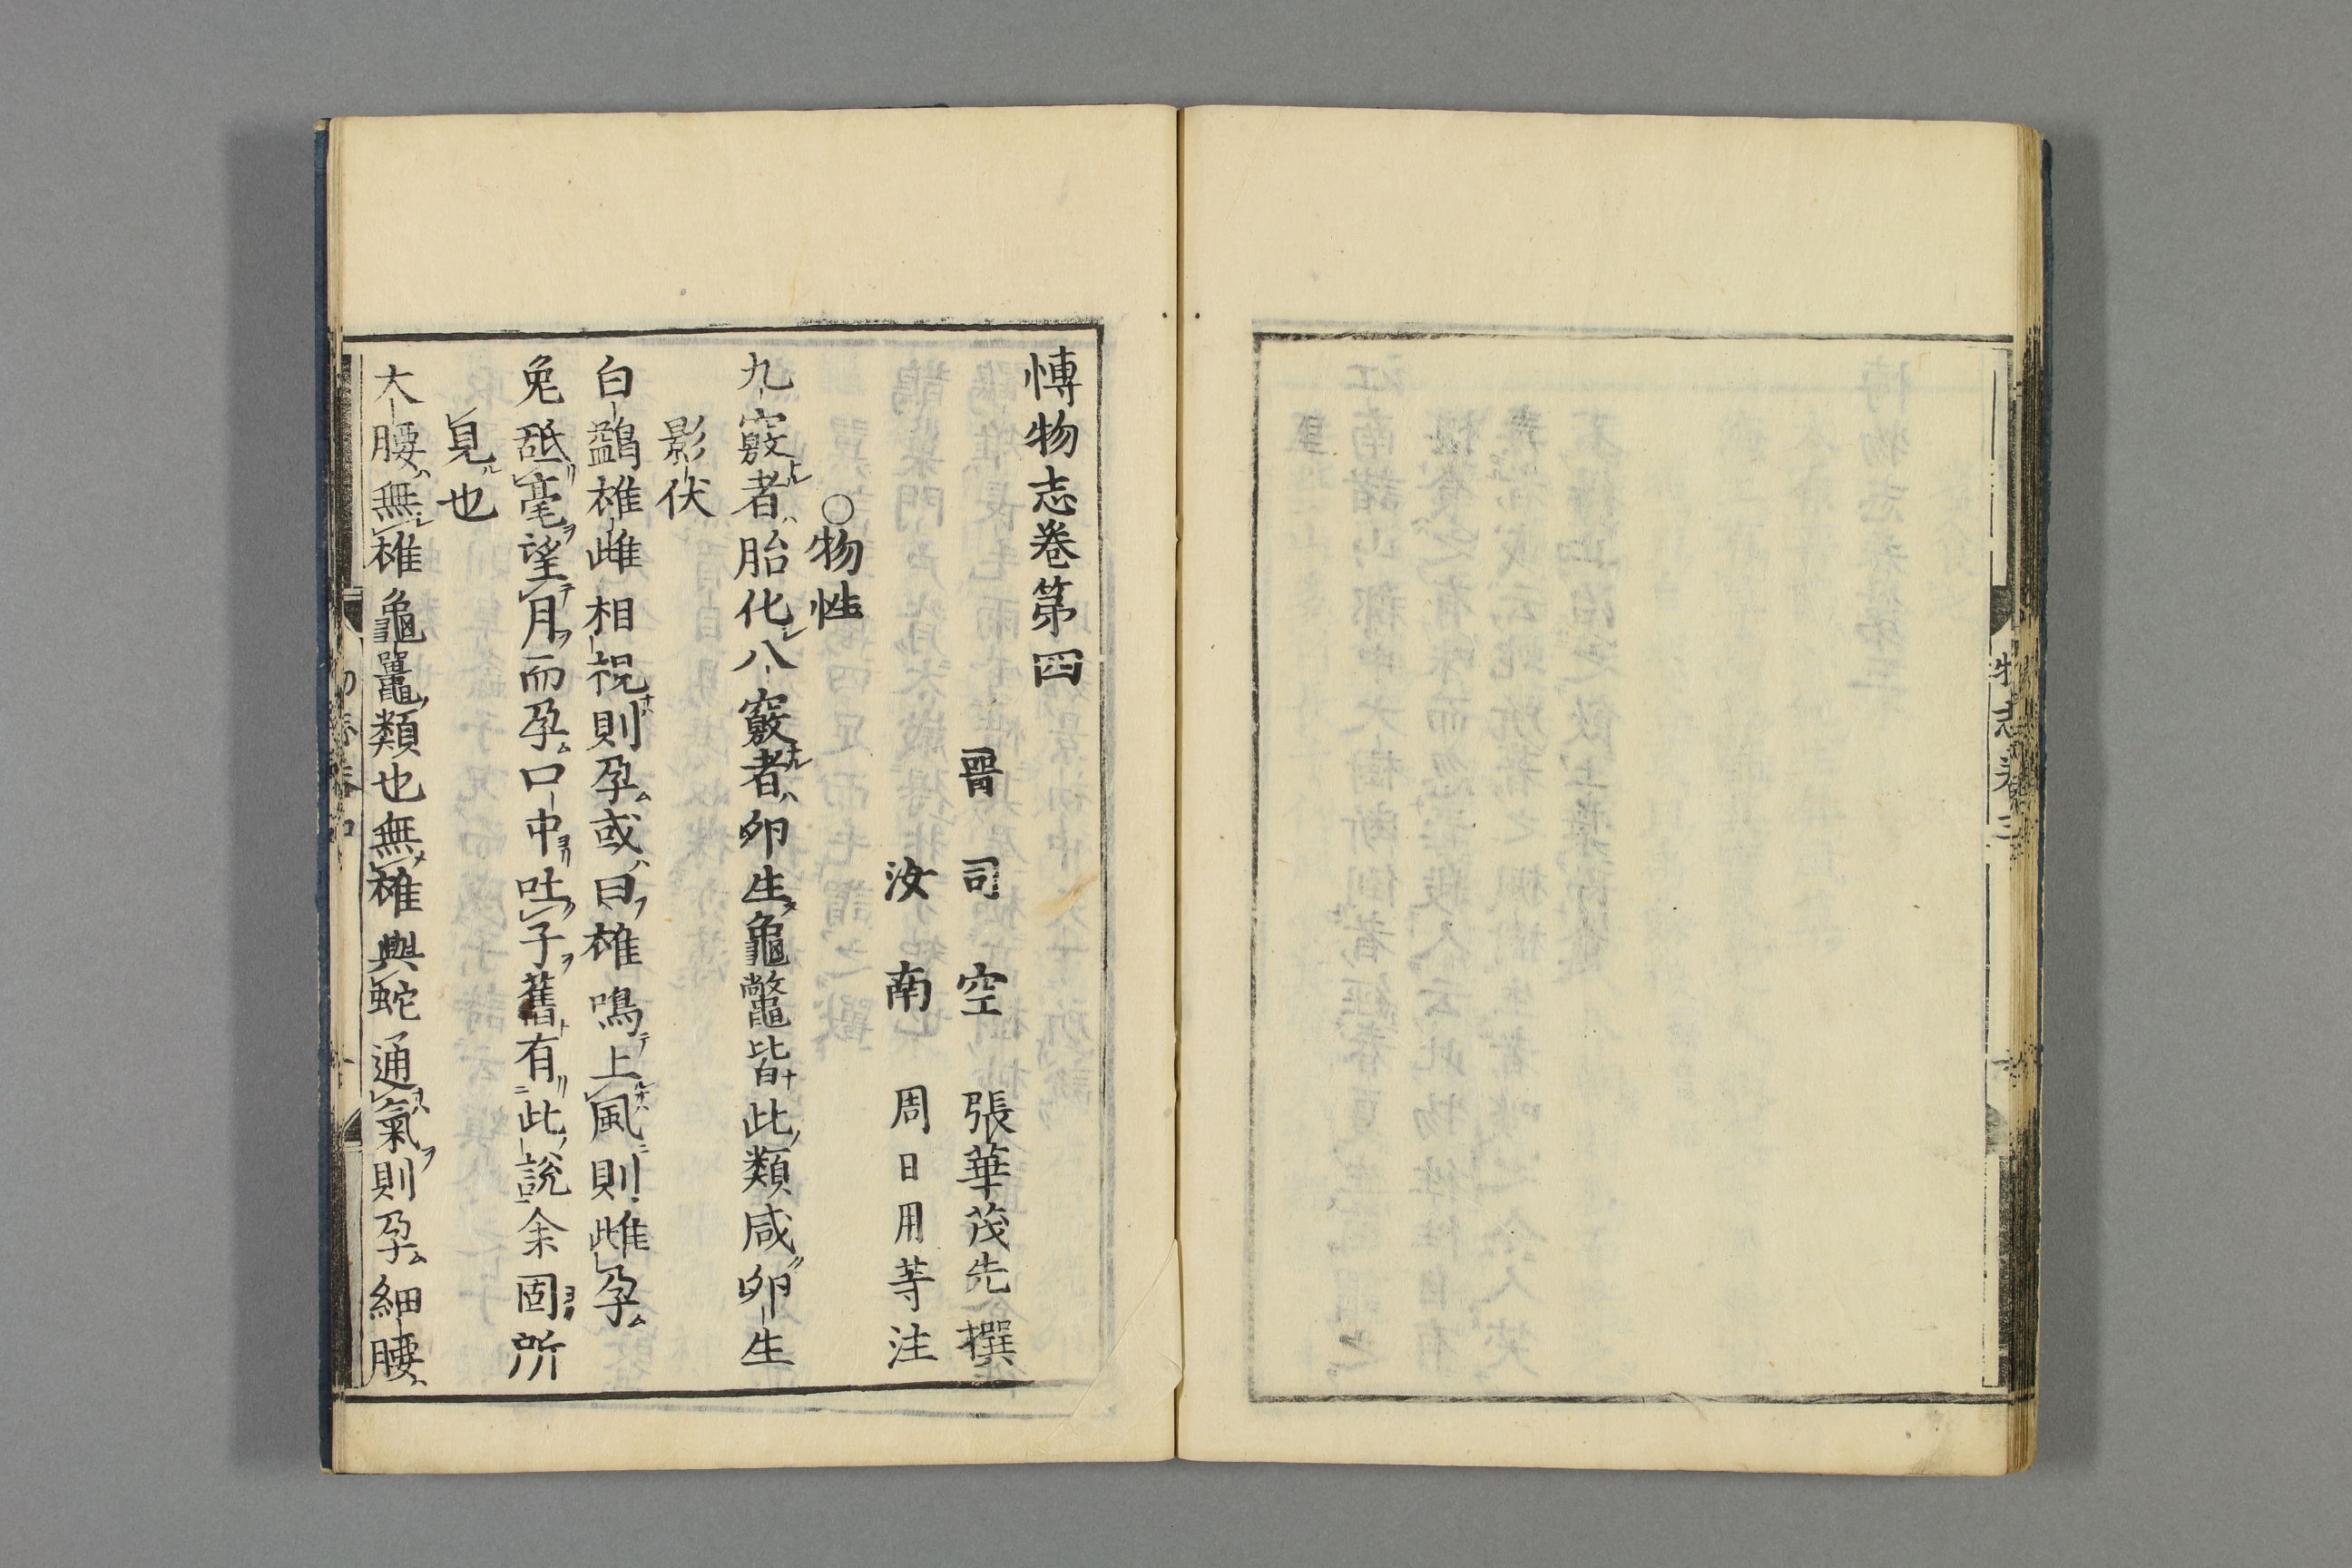 物志卷三
愽物志卷第四
晋司空張華茂先撰
汝南周日用等注
○物性
九竅者胎化八竅者卵生龜鼈皆此類咸卵生
影伏
白鷁雄雌相視則孕或曰雄鳴上風則雌孕
兔䑛毫望月而孕口中吐子舊有此說余固所
見也
大腰無雄龜鼉類也無雄與蛇通氣則孕細腰